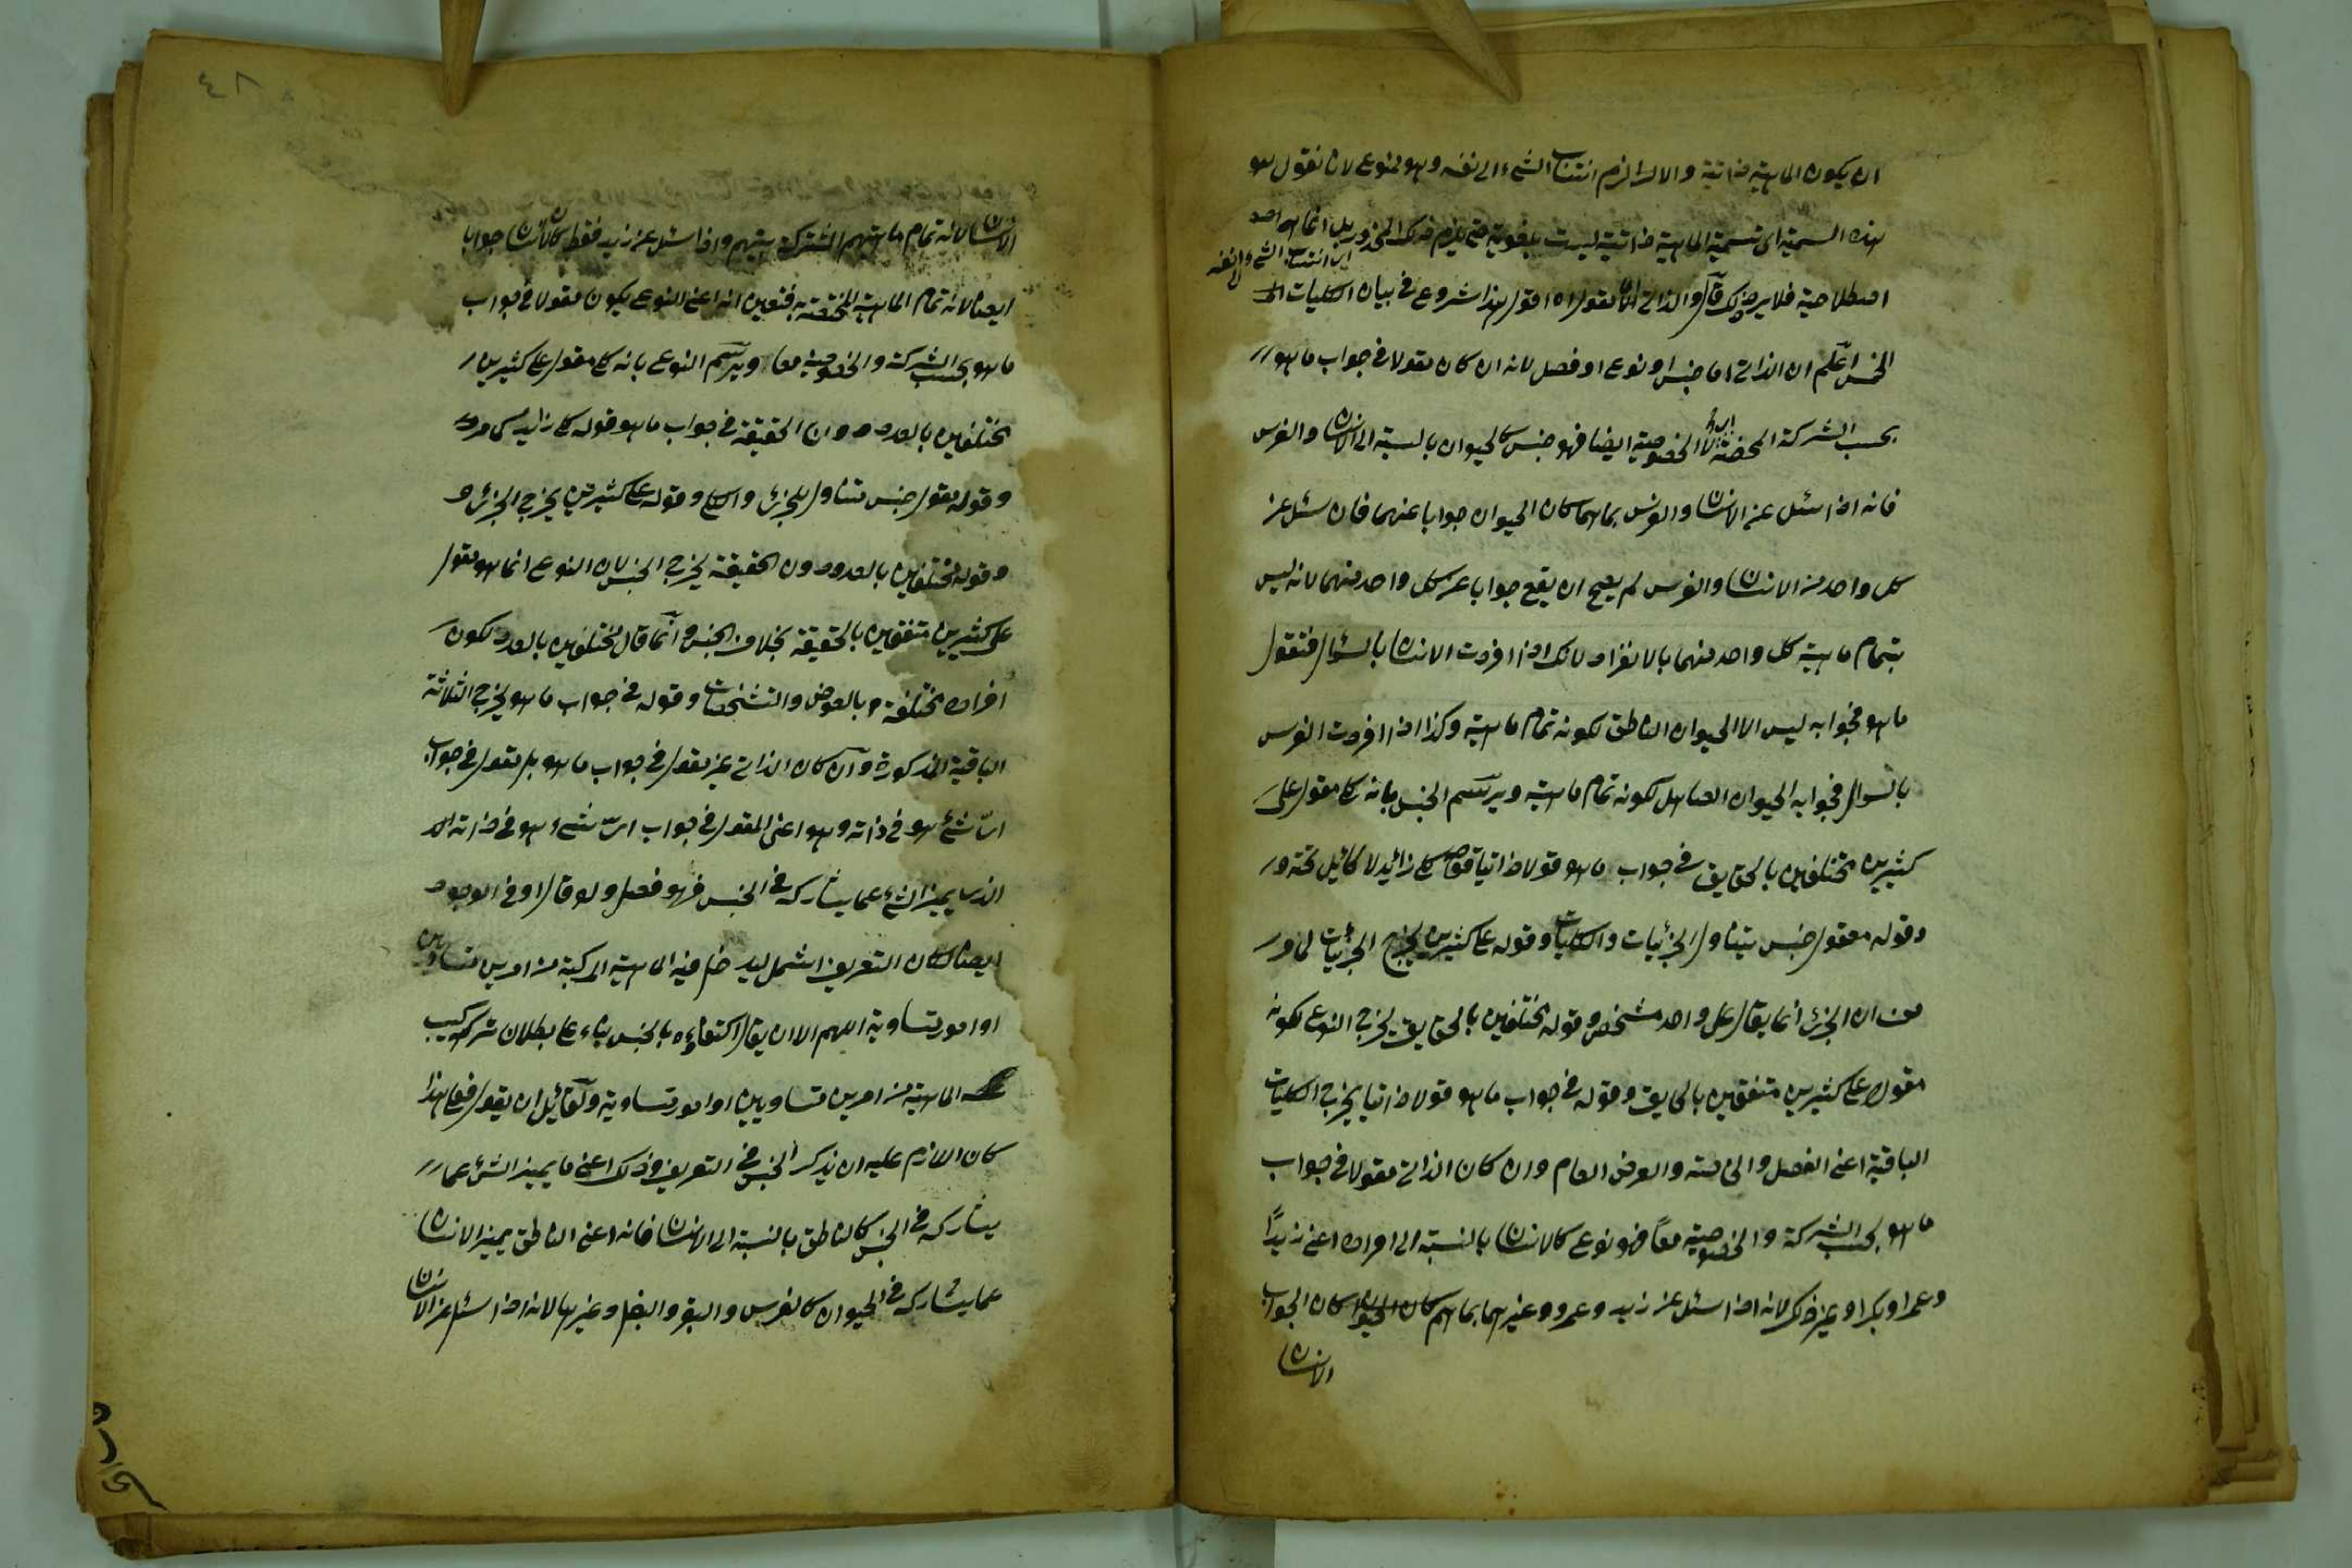 ان يكون الماهية ذاتية والا لزم انتساب الشئ الى نفسه وهو ممنوع لانا نقول هو
هذه التسمية اى تسمية الماهية ذاتية ليست بلغوية حتى يلزم ذلك المحذور بل انما هو اصد
اى انتساب الشئ الى نفسه
اصطلاحية فلا يرد ذلك قال والذاتى اما مقول اه اقول هذا شروع فى بيان الكليات
الخمس اعلم ان الذاتى اما جنس او نوع او فصل لانه ان كان مقولا فى جواب ما هو
بحسب الشركة المحضة لا الخصوصية ايضا فهو جنس كالحيوان بالنسبة الى الانسان والفرس
فانه اذا سئل عن الانسان والفرس بما هما كان الحيوان جوابا عنهما فان سئل عن
كل واحد من الانسان والفرس لم يصح ان يقع جوابا عن كل واحد منهما لانه ليس
بتمام ماهية كل واحد منهما بالانفراد لانك اذا افردت الانسان بالسؤال فتقول
ما هو فجوابه ليس الا الحيوان الناطق لكونه تمام ماهيته وكذا اذا افردت الفرس
بالسوال فجوابه الحيوان الصاهل لكونه تمام ماهيته ويرسم الجنس بانه كلى مقول على
كثيرين مختلفين بالحقايق فى جواب ما هو قولا ذاتيا فقوله كلى زائد لا طائل تحته
وقوله مقول جنس يتناول الجزئيات والكليات وقوله على كثيرين يخرج الجزئيات لما مر
من ان الجزئ انما يقال على واحد مشخص وقوله مختلفين بالحقايق يخرج النوع لكونه
مقولا على كثيرين متفقين بالحقايق وقوله فى جواب ما هو قولا ذاتيا يخرج الكليات
الباقية اعنى الفصل والخاصة والعرض العام وان كان الذاتى مقولا فى جواب
ما هو بحسب الشركة والخصوصية معًا فهو نوع كالانسان بالنسبة الى افراده اعنى زيدًا
وعمرا وبكرا وغير ذلك لانه اذا سئل عن زيد وعمرو وغيرهما بما هم كان الحيوان كان الجواب
الانسان
٤٨
الانسان لانه تمام ماهيتهم المشتركة بينهم واذا سئل عن زيد فقط كان الانسان جوابا
ايضا لانه تمام الماهية المختصة به فتعين انه اعنى النوع يكون مقولا فى جواب
ما هو بحسب الشركة والخصوصية معا ويرسم النوع بانه كلى مقول على كثيرين
مختلفين بالعدد دون الحقيقة فى جواب ما هو قوله كلى زايد كما مر
وقوله مقول جنس متناول للجزئ والكلى وقوله على كثيرين يخرج الجزئ
وقوله مختلفين بالعدد دون الحقيقة يخرج الجنس لان النوع انما هو مقول
على كثيرين متفقين بالحقيقة بخلاف الجنس وانما قال مختلفين بالعدد لكون
افراده مختلفة بالعوارض والتشخصات وقوله فى جواب ما هو يخرج الثلاثة
الباقية المذكورة وان كان الذاتى غير مقول فى جواب ما هو بل مقول فى جواب
اىّ شئ هو فى ذاته وهو اعنى المقول فى جواب اىّ شئ هو فى ذاته
الذى يميز الشئ عما يشاركه فى الجنس فهو فصل ولو قال او فى الوجود
ايضا لكان التعريف اشمل ليدخل فيه الماهية المركبة من امرين متساويين
او امور متساوية اللهم الا ان يقال اكتفاؤه بالجنس بناء على بطلان تركيب
الماهية من امرين متساويين او امور متساوية ولقائل ان يقول فعلى هذا
كان اللازم عليه ان يذكر الجنس فى التعريف وذلك اعنى ما يميز الشئ عما
يشاركه فى الجنس كالناطق بالنسبة الى الانسان فانه اعنى الناطق يميز الانسان
عما يشاركه فى الحيوان كالفرس والبقر والبغل وغيرها لانه اذا سئل عن الانسان